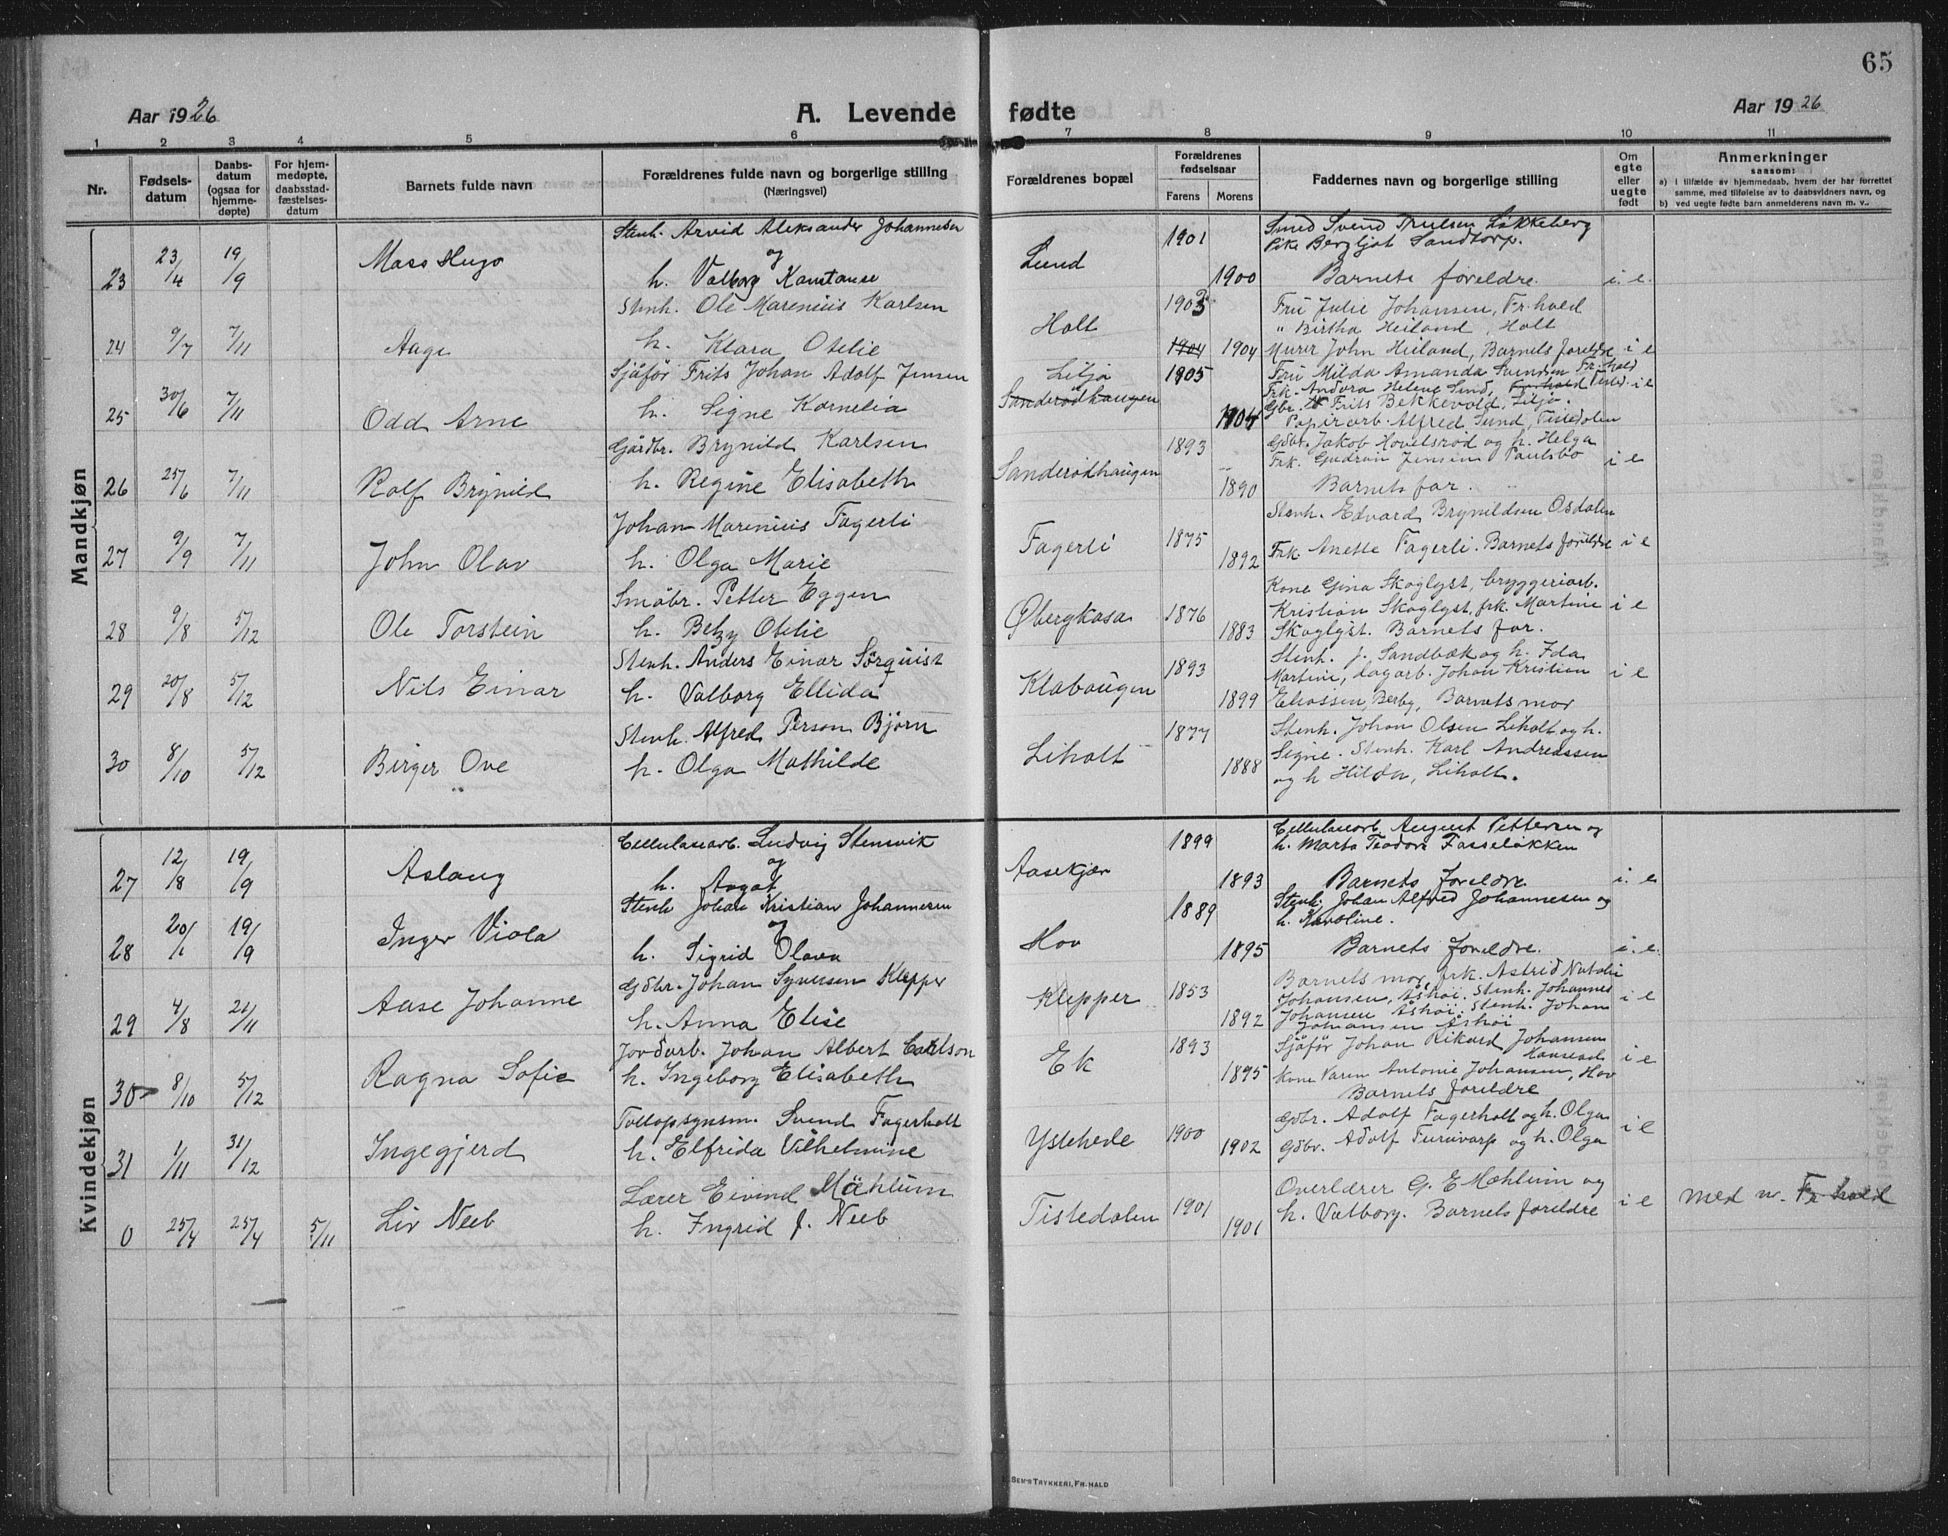 65
Aar 1926
A. Levende fødte
Aar 1926
1 2 3 4 5 6 7 8 9 10 11
Nr.
Fødsels-
datum
Daabs-
datum
(ogsaa for
hjemme-
døpte)
For hjem-
medøpte,
daabsstad-
fæstelses-
datum
Barnets fulde navn
Forældrenes fulde navn og borgerlige stilling
(Næringsvei)
Forældrenes bopæl
Forældrenes
fødselsaar
Farens Morens
Faddernes navn og borgerlige stilling
Om
egte
eller
uegte
født
Anmerkninger
saasom:
a) i tilfælde av hjemmedaab, hvem der har forrettet
samme, med tilføielse av to daabsvidners navn, og
b) ved uegte fødte barn anmelderens navn m. v..
Mandkjøn
Stenh. Arvid Aleksander Johannesen 1901 Smed Svend Trulsen Løkkeberg
og Pike Bergljot Sandtorp.
23 23/4 19/9 Mass Hugo h. Valborg Konstanse Lund 1900 Barnets foreldre. i. e.
Stenh. Ole Marenius Karlsen 1903 Fru Julie Johansen, Fr.hald
Holt " Birtha Heiland, Holt
24 9/7 7/11 Aage h. Klara Otelie 1904 1904 Murer John Heiland, Barnets foreldre i e
Sjåfør Frits Johan Adolf Jensen Lilja 1905 Fru Milda Amanda Svendsen Fr.hald
Sanderødhaugen Frk. Andora Helene Lund, Fr.hald Tisted. i e
25 30/6 7/11 Odd Arne h. Signe Kornelia 1904 Gbr. Frits Bekkevold, Lilja.
Papirarb. Alfred Lund, Tistedalen
Gårdbr. Brynild Karlsen 1893 Gdbr. Jakob Hovelsrød og h. Helga
Frk. Gudrun Jensen Paulsbo i e
26 25/6 7/11 Rolf Brynild h. Regine Elisabeth Sanderødhaugen 1890 Barnets far.
Johan Marenius Fagerli Stenh. Edvard Brynildsen Osdalen
27 9/9 7/11 John Olav h. Olga Marie Fagerli 1875 1892 Frk Anette Fagerli. Barnets foreldre i e
Småbr. Petter Eggen Kone Gina Skoglyst, bryggeriarb.
28 9/8 5/12 Ole Torstein h. Betzy Otelie Øbergkasa 1876 1883 Kristian Skoglyst, frk. Martine i e
Skoglyst. Barnets far.
Stenh. Anders Einar Sörquist 1893 Stenh. J. Sandbæk og h. Ida
29 20/8 5/12 Nils Einar h. Valborg Ellida Klabaugen 1899 Martine, dagarb. Johan Kristian i e
Eliassen, Berby, Barnets mor
Stenh. Alfred Person Björn 1877 Stenh. Johan Olsen Liholt og h.
30 8/10 5/12 Birger Ove h. Olga Mathilde Liholt 1888 Signe. Stenh. Karl Andreassen
og h Hilda, Liholt.
Kvindekjøn
Cellulosearb. Ludvig Stensvik 1899 Cellulosearb August Pettersen og
og h. Marta Teodora Fasseløkken
27 12/8 19/9 Aslaug h. Aagot Aasekjær 1893 Barnets foreldre. i. e
Stenh Johan Kristian Johannesen 1889 Stenh. Johan Alfred Johannesen og
og h. Karoline.
28 20/1 19/9 Inger Viola h. Sigrid Olava Hov 1895 Barnets foreldre. i. e.
Gdbr. Johan Syversen Klepper 1853 Barnets mor, frk. Astrid Natalie
Johansen, Åshøi. Stenh. Johannes i e
29 4/8 21/11 Aase Johanne h. Anna Elise Klepper 1892 Johansen Åshøi. Stenh. Johan
Johansen Åshøi
Jordarb. Johan Albert Carlson 1893 Sjåfør Johan Rikard Johansen
30 8/10 5/12 Ragna Sofie h. Ingeborg Elisabeth Ek 1895 Kone Karen Antonie Johansen, Hov i e
Barnets foreldre
Tollopsynsm. Svend Fagerholt Gdbr. Adolf Fagerholt og h. Olga
31 1/11 31/12 Ingegjerd h. Elfrida Vilhelmine Ystehede 1900 1902 Gdbr. Adolf Furuvarp og h. Olga i e
Lærer Eivind Mæhlum Overlærer G. E Mæhlum og
0 25/4 25/4 5/11 Liv Neeb h. Ingrid J. Neeb Tistedalen 1901 1901 h. Valborg. Barnets foreldre i e med nr. Fr hald
SEN'S TRYKKERI, FR-HALD